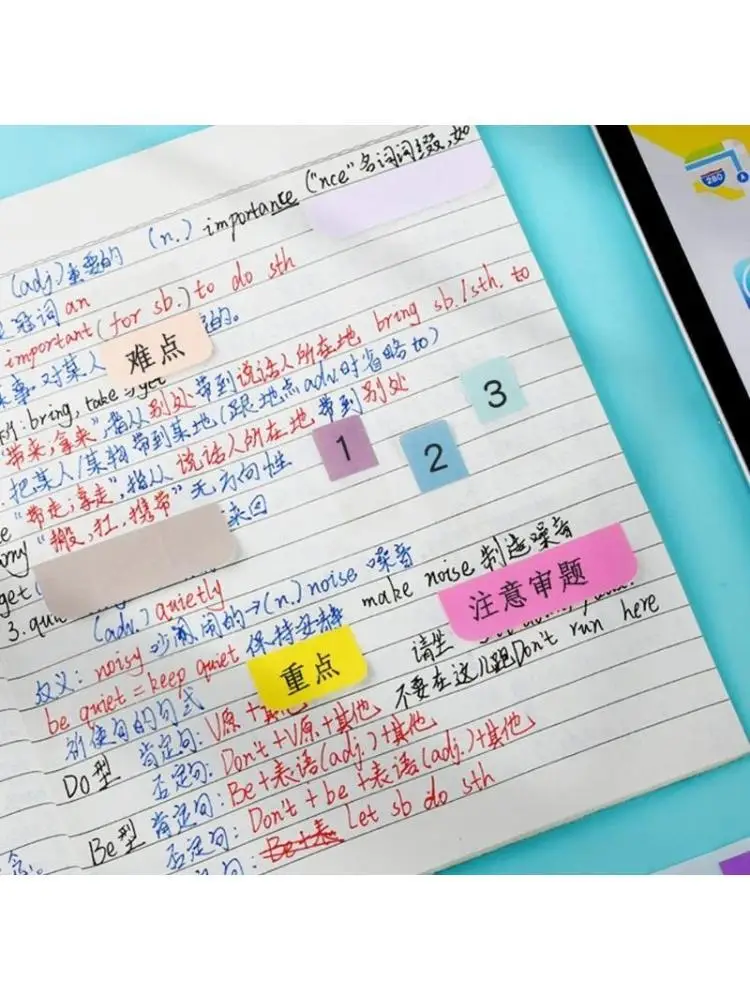 (adj.)重要的 (n.) importance ("nce"名词词缀,如
冠词 an
important (for sb.) to do sth
事对某人 难点 的。
bring, take与get bring sb./sth. to
"带来,拿来",指从别处带到说话人所在地
把某人/某物带到某地(跟地点adv.时省略to)
"带走;拿走",指从说话人所在地带到别处
1
2
3
"搬,扛,携带"无方向性
get 来回
3. (adv.) quietly
反义: noisy 吵闹的→(n.) noise 噪音 make noise 制造噪音
注意审题
be quiet = keep quiet 保持安静
重点
请坐
祈使句的句式 不要在这儿跑Don't run here
Do型 肯定句: V原+其他
否定句: Don't+V原+其他
Be型 肯定句: Be+表语(adj.)+其他
否定句: Don't + be +表语(adj.)+其他
句: Let sb do sth
280